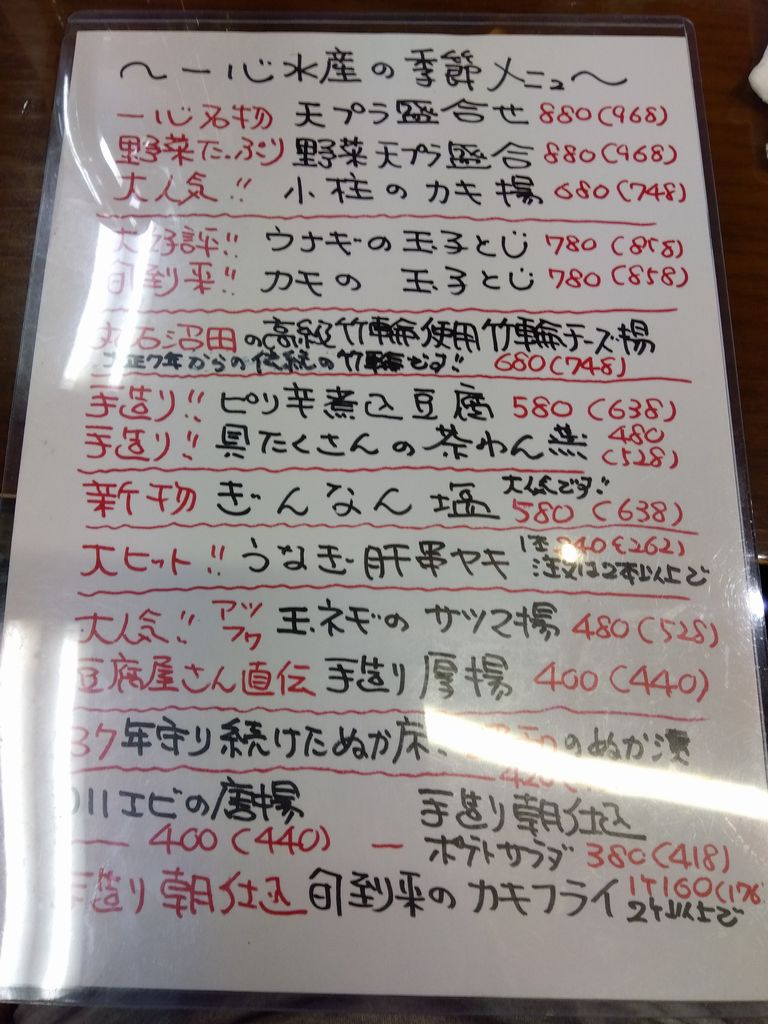 〜一心水産の季節メニュ〜
一心名物 天プラ盛合せ 880(968)
野菜たっぷり 野菜天プラ盛合 880(968)
大人気!! 小柱のカキ揚 680(748)
大好評!! ウナギの玉子とじ 780(858)
旬到来!! カモの 玉子とじ 780(858)
沼田の高級竹輪使用竹輪チーズ揚
正7年からの伝統の竹輪です!! 680(748)
手造り!! ピリ辛煮込豆腐 580(638)
手造り!! 具たくさんの茶わん蒸 480(528)
新物 ぎんなん塩 大人気です!! 580(638)
大ヒット!! うなぎ肝串ヤキ 1本240(262)
注文は2本以上で
大人気!! アツフワ 玉ネギのサツマ揚 480(528)
豆腐屋さん直伝 手造り厚揚 400(440)
37年守り続けたぬか床 のぬか漬
420
川エビの唐揚 400(440)
手造り朝仕込 ポテトサラダ 380(418)
手造り朝仕込 旬到来のカキフライ 1ケ160(176
2ケ以上で